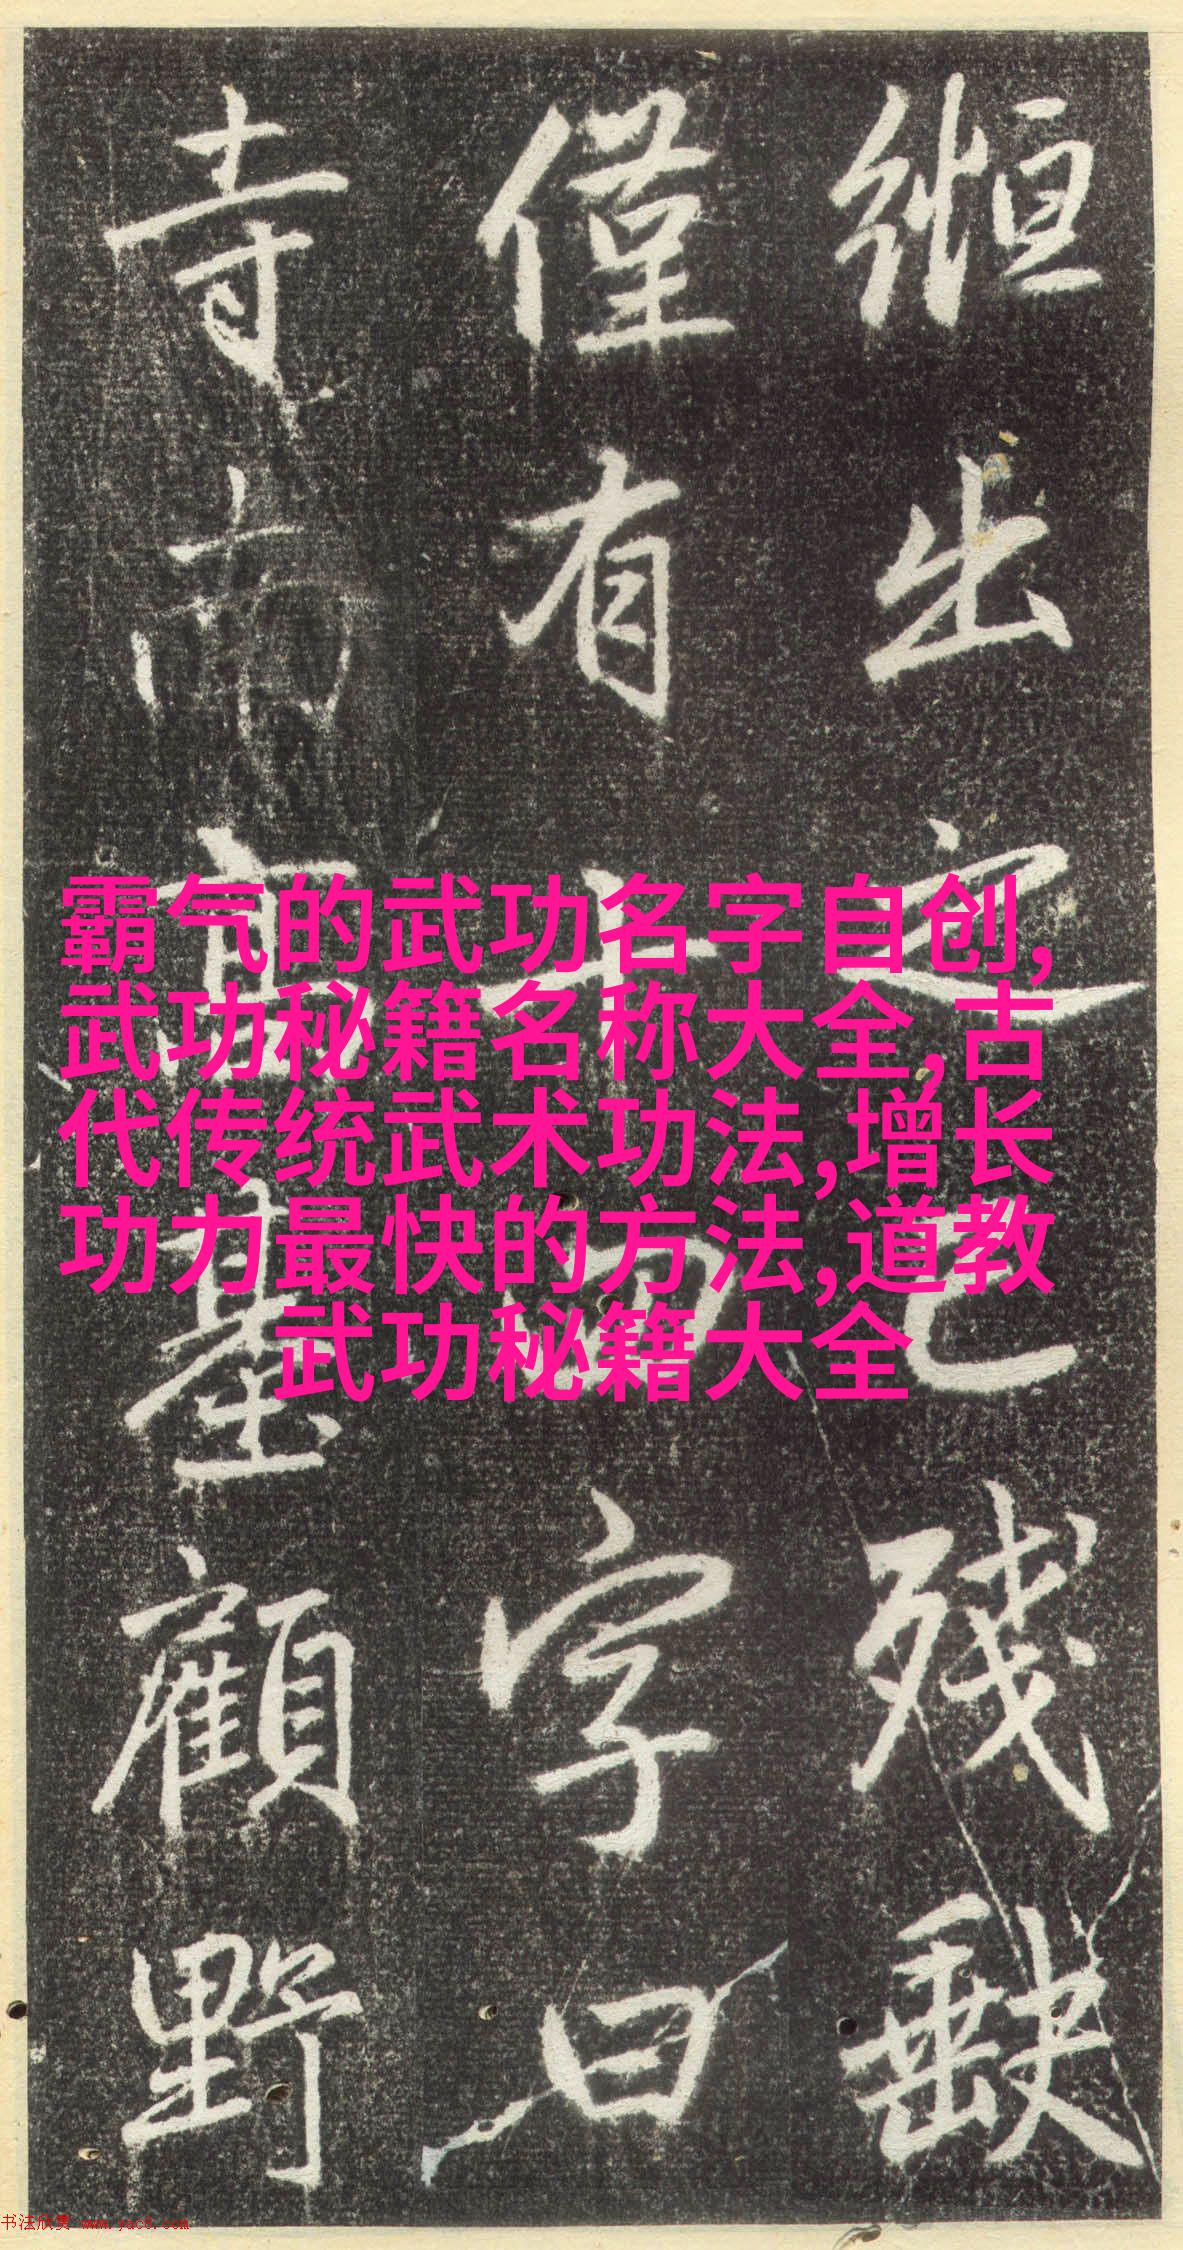 縆出之已残缺
僅有十四字曰
寺南高基顧野
霸气的武功名字自创,
武功秘籍名称大全,古
代传统武术功法,增长
功力最快的方法,道教
武功秘籍大全
书法欣赏 www.yac8.com